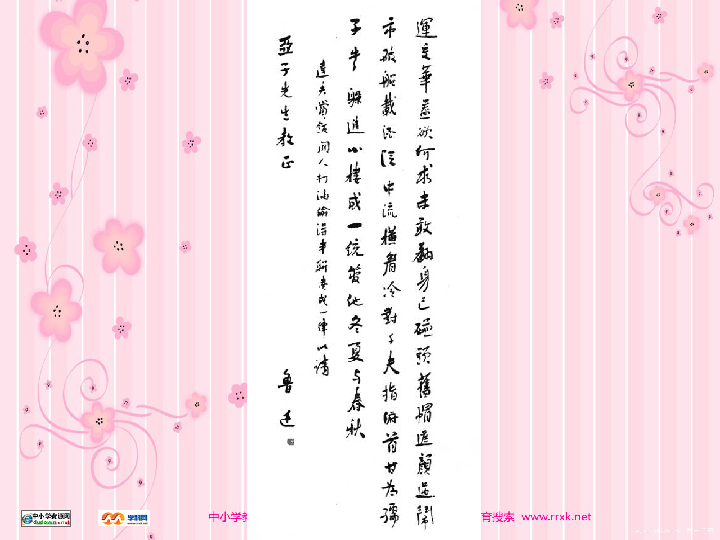 運交華蓋欲何求未敢翻身已碰頭舊帽遮顏過鬧
市破船載酒泛中流橫眉冷對千夫指俯首甘為孺
子牛躲進小樓成一統管他冬夏与春秋
達夫賞飯閒人打油偷得半聯湊成一律以請
亞子先生教正
魯迅
中小学教
育搜索 www.rrxk.net